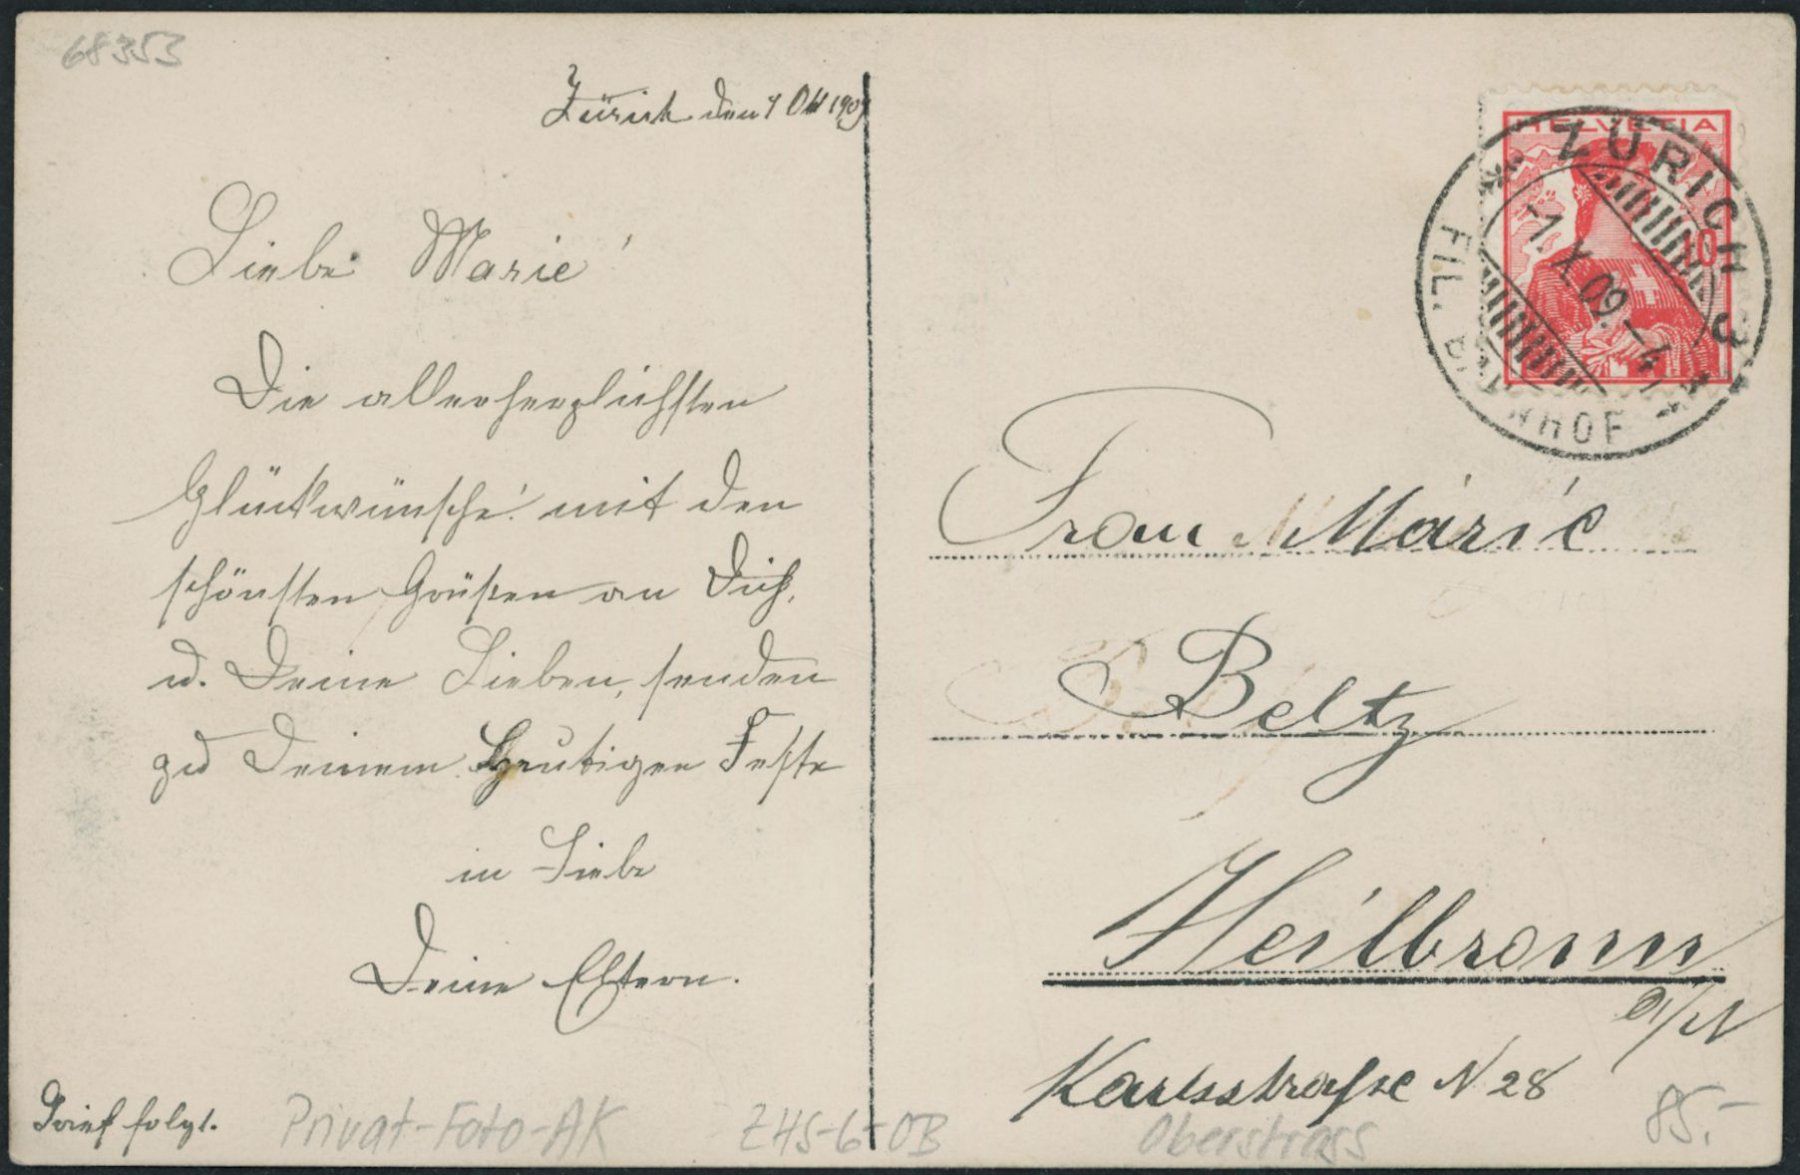 68353
Zürich den 1 Okt 1909
Liebe Marie
Die allerherzlichsten
Glückwünsche mit den
schönsten Grüßen an Dich,
u. Deine Lieben, senden
zu Deinem heutigen Feste
in Liebe
Deine Eltern.
Brief folgt.
HELVETIA
10
ZÜRICH 3
-1.X.09.-4
FIL. BAHNHOF
Frau Marie
Beltz
Heilbronn
a/N
Karlsstraße N 28
Privat-Foto-AK
ZHS-6-OB
Oberstrass
85.-